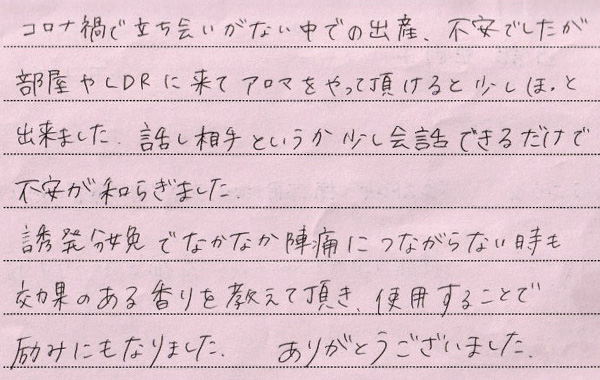 コロナ禍で立ち会いがない中での出産、不安でしたが
部屋やLDRに来てアロマをやって頂けると少しほっと
出来ました。話し相手というか少し会話できるだけで
不安が和らぎました。
誘発分娩でなかなか陣痛につながらない時も
効果のある香りを教えて頂き、使用することで
励みにもなりました。 ありがとうございました。